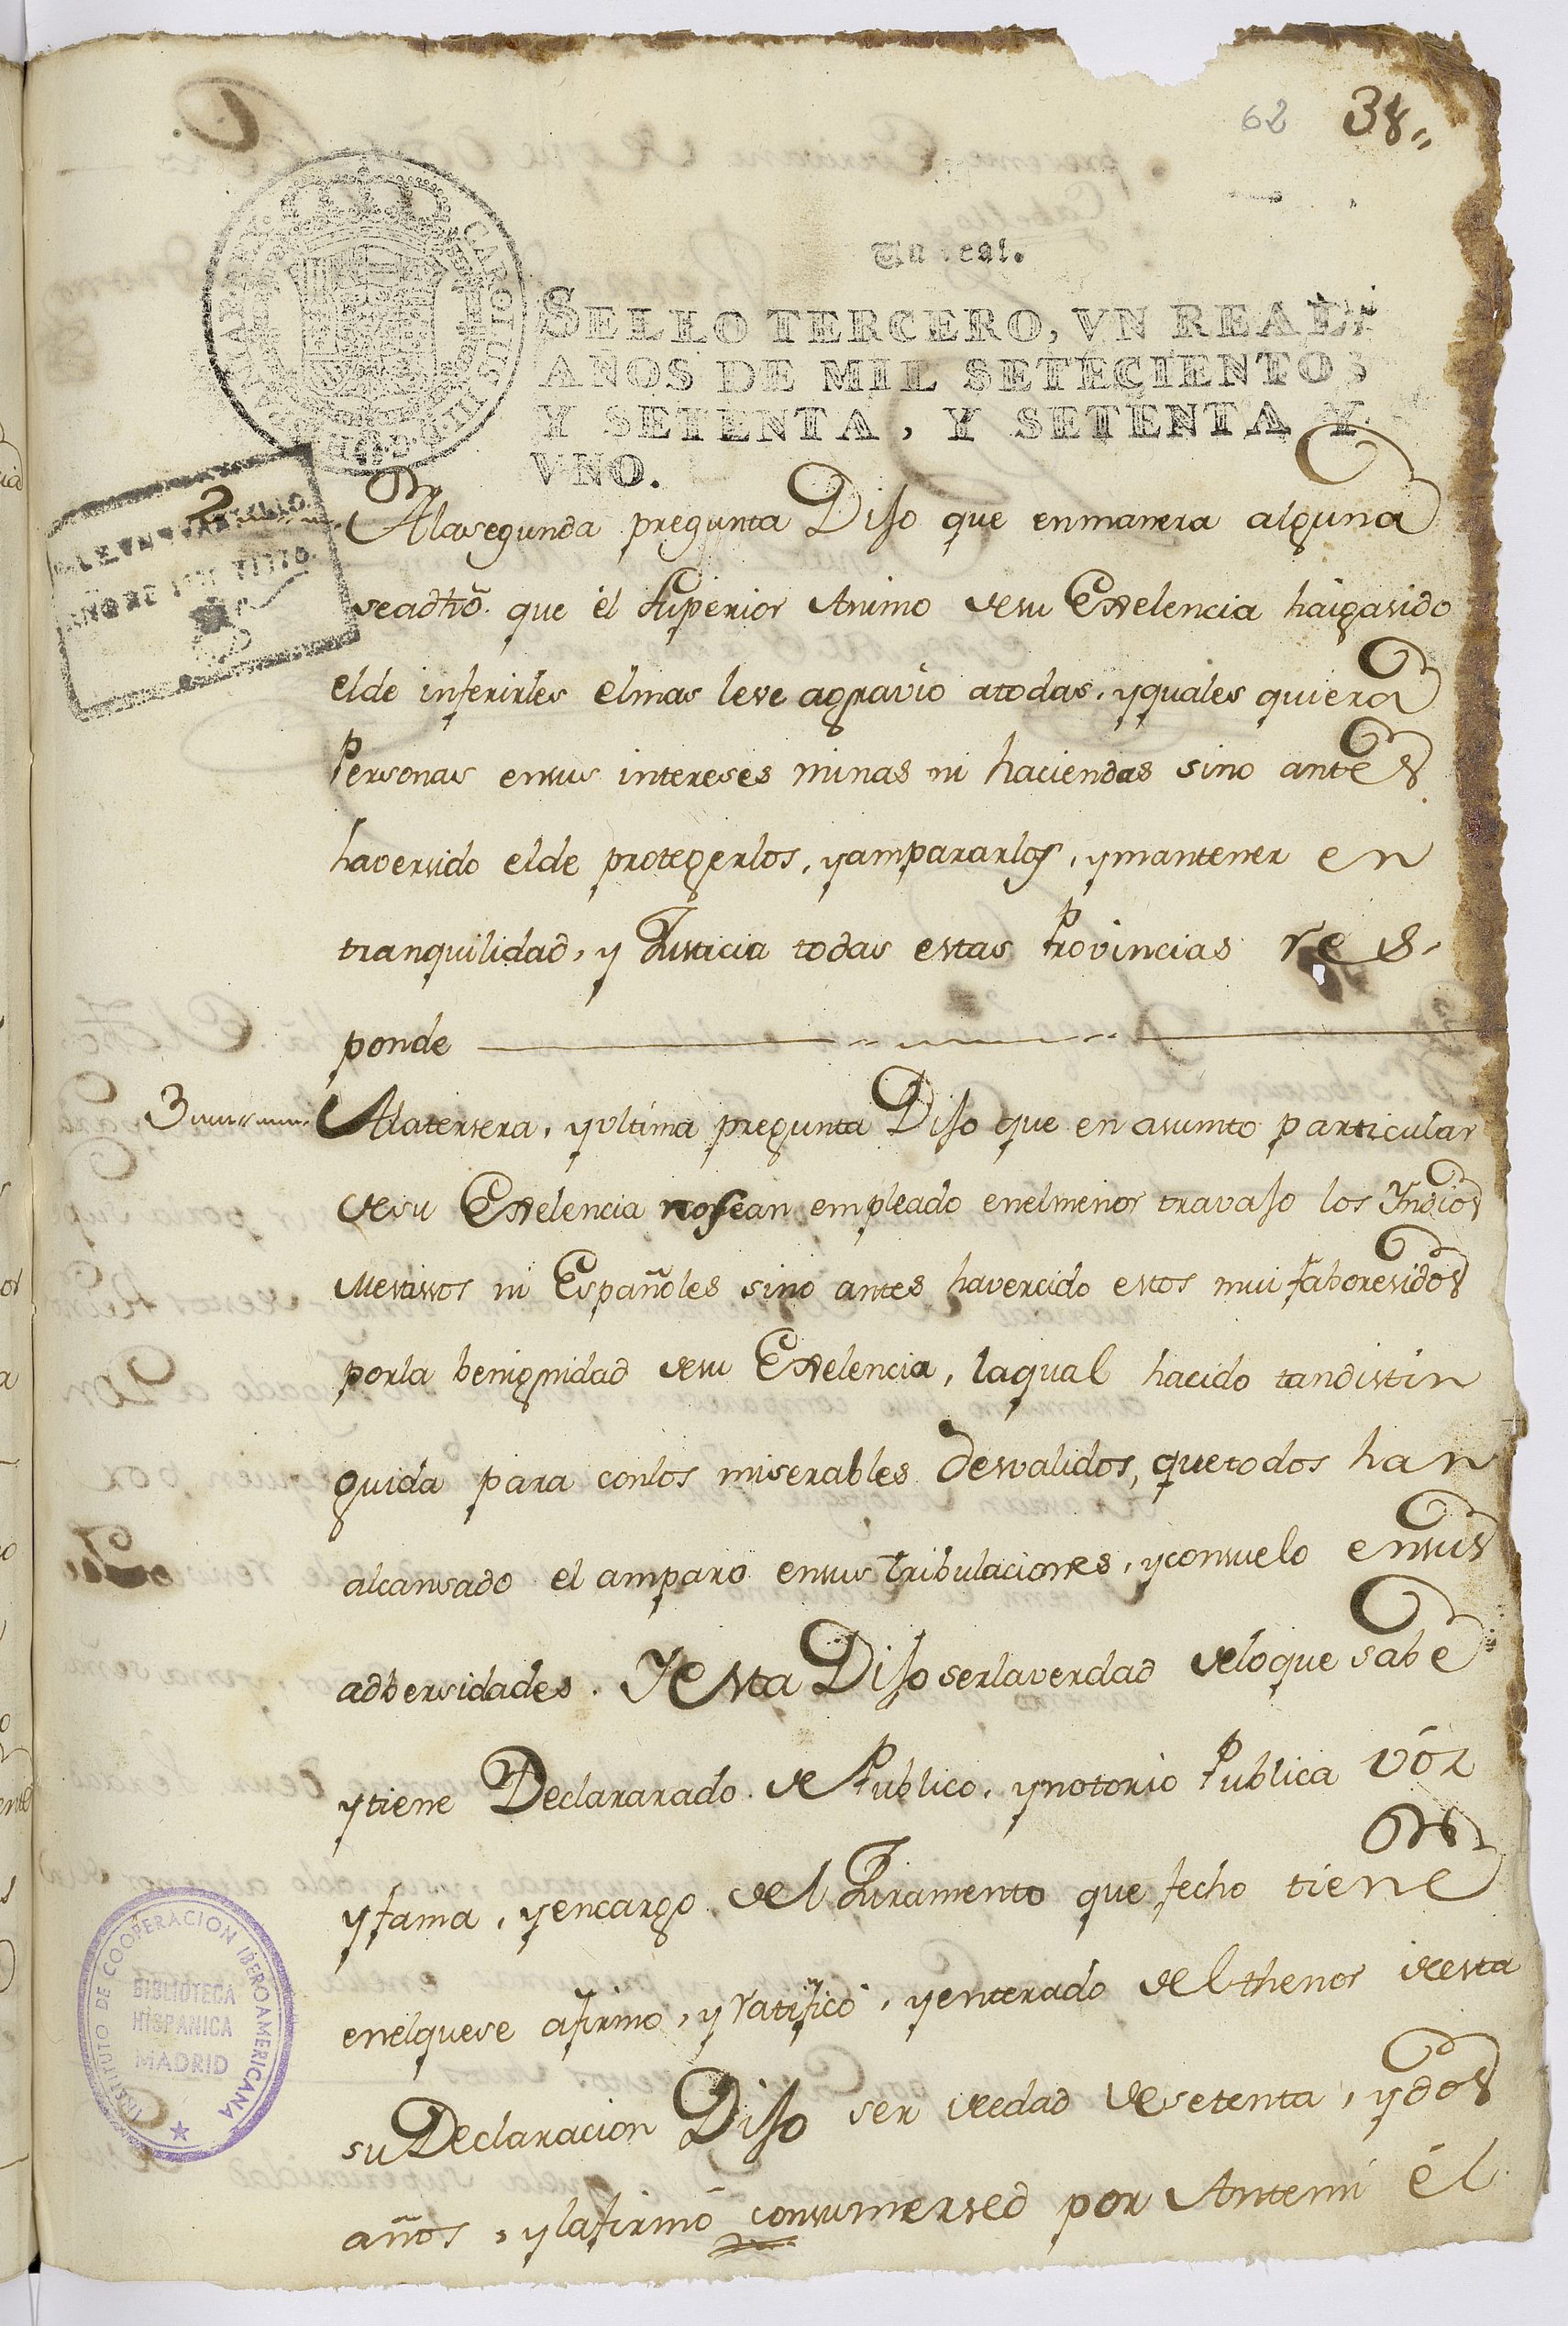 62 38
Un real.
SELLO TERCERO, VN REAL,
AÑOS DE MIL SETECIENTOS
Y SETENTA, Y SETENTA Y
VNO.
2 Ala segunda pregunta Dijo que enmanera alguna
seadtiõ. que él Superior Animo desu Exelencia haigasido
elde inferirles elmas leve agravio atodas, yquales quiera
Personas ensus intereses minas ni haciendas sino antes
haversido elde protegerlos, yampararlos, ymantener en
tranquilidad, y Justicia todas estas Provincias res-
ponde
3 Alatersera, yvltima pregunta Dijo que en asumto particular
desu Exelencia nosean empleado enelmenor travajo los Yndios
Mestisos ni Españoles sino antes havercido estos mui faboresidos
porla benignidad desu Exelencia, laqual hacido tandistin
guida para conlos miserables desvalidos, quetodos han
alcansado el amparo ensus tribulaciones, yconsuelo ensus
adbersidades. Yesta Dijo serlaverdad deloque sabe
ytiene Declararado de Publico, ynotorio Publica vóz
yfama, yencargo del Juramento que fecho tiene
enélquese afirmo, y ratificó, yenterado delthenor desta
su Declaracion Dijo ser deedad desetenta, ydos
años, ylafirmó consumersed por Antemi él
INSTITUTO DE COOPERACION IBEROAMERICANA
BIBLIOTECA
HISPANICA
MADRID